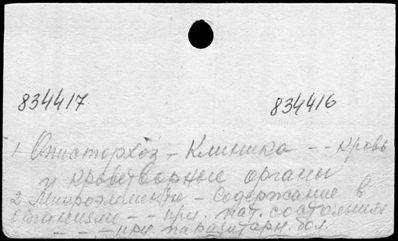 834417 834416
1 Описторхоз - Клиника - - кровь
и кроветворные органы
2. Микроэлементы - Содержание в
организме - - при. пат. состояниях
- - при паразитарн. бол.